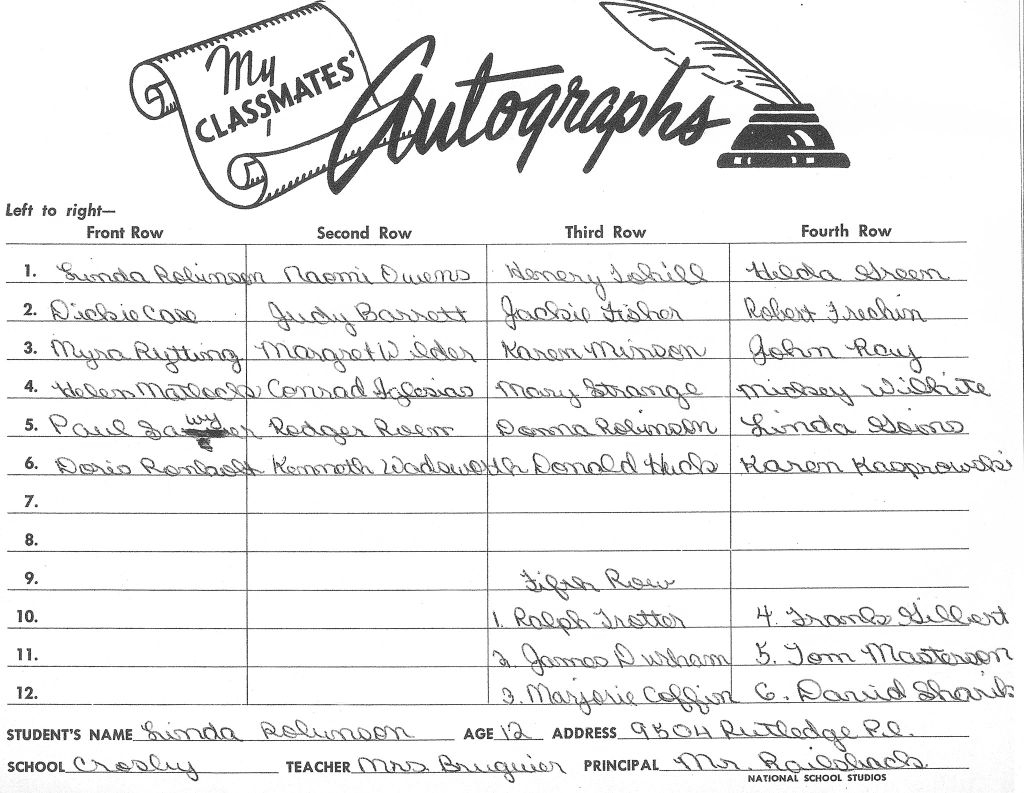 My
CLASSMATES'
Autographs
Left to right—
Front Row Second Row Third Row Fourth Row
1. Linda Robinson Naomi Owens Henery Tohill Hilda Green
2. Dickie Case Judy Barrett Jackie Fisher Robert Frechin
3. Myra Rytting Margret Wilder Karen Minson John Ray
4. Helen Matlock Conrad Iglesias Mary Strange Mickey Wilhite
5. Paul Rodger Roem Donna Robinson Linda Goins
6. Doris Kenneth Wadsworth Donald Huck Karen Kasprowski
7.
8.
9. Fifth Row
10. 1. Ralph Trotter 4. Frank Gilbert
11. 2. James Durham 5. Tom Masterson
12. 3. Marjorie Coffin 6. David
STUDENT'S NAME Linda Robinson AGE 12 ADDRESS 9504 Rutledge Pl.
SCHOOL Crosby TEACHER Mrs. Bruguier PRINCIPAL Mr. Railsback
NATIONAL SCHOOL STUDIOS